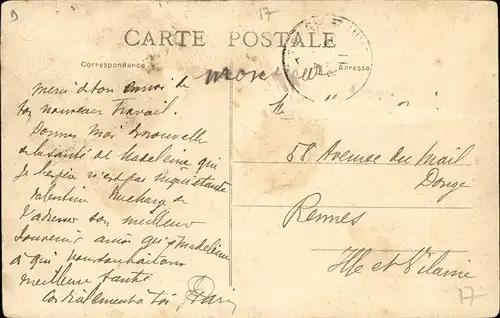 17
CARTE POSTALE
Correspondance
Adresse
Monsieur
Merci de ton envoi de
ton nouveau travail.
Donnes moi nouvelle
de la santé de Madeleine qui
je espère n'est pas inquiétante
Valentine me charge de
t'adresser son meilleur
souvenir ainsi qu'à Madeleine
à qui nous souhaitons
meilleure santé
Cordialement à toi
58 Avenue du Mail
Donge
Rennes
Ille et Vilaine
17-